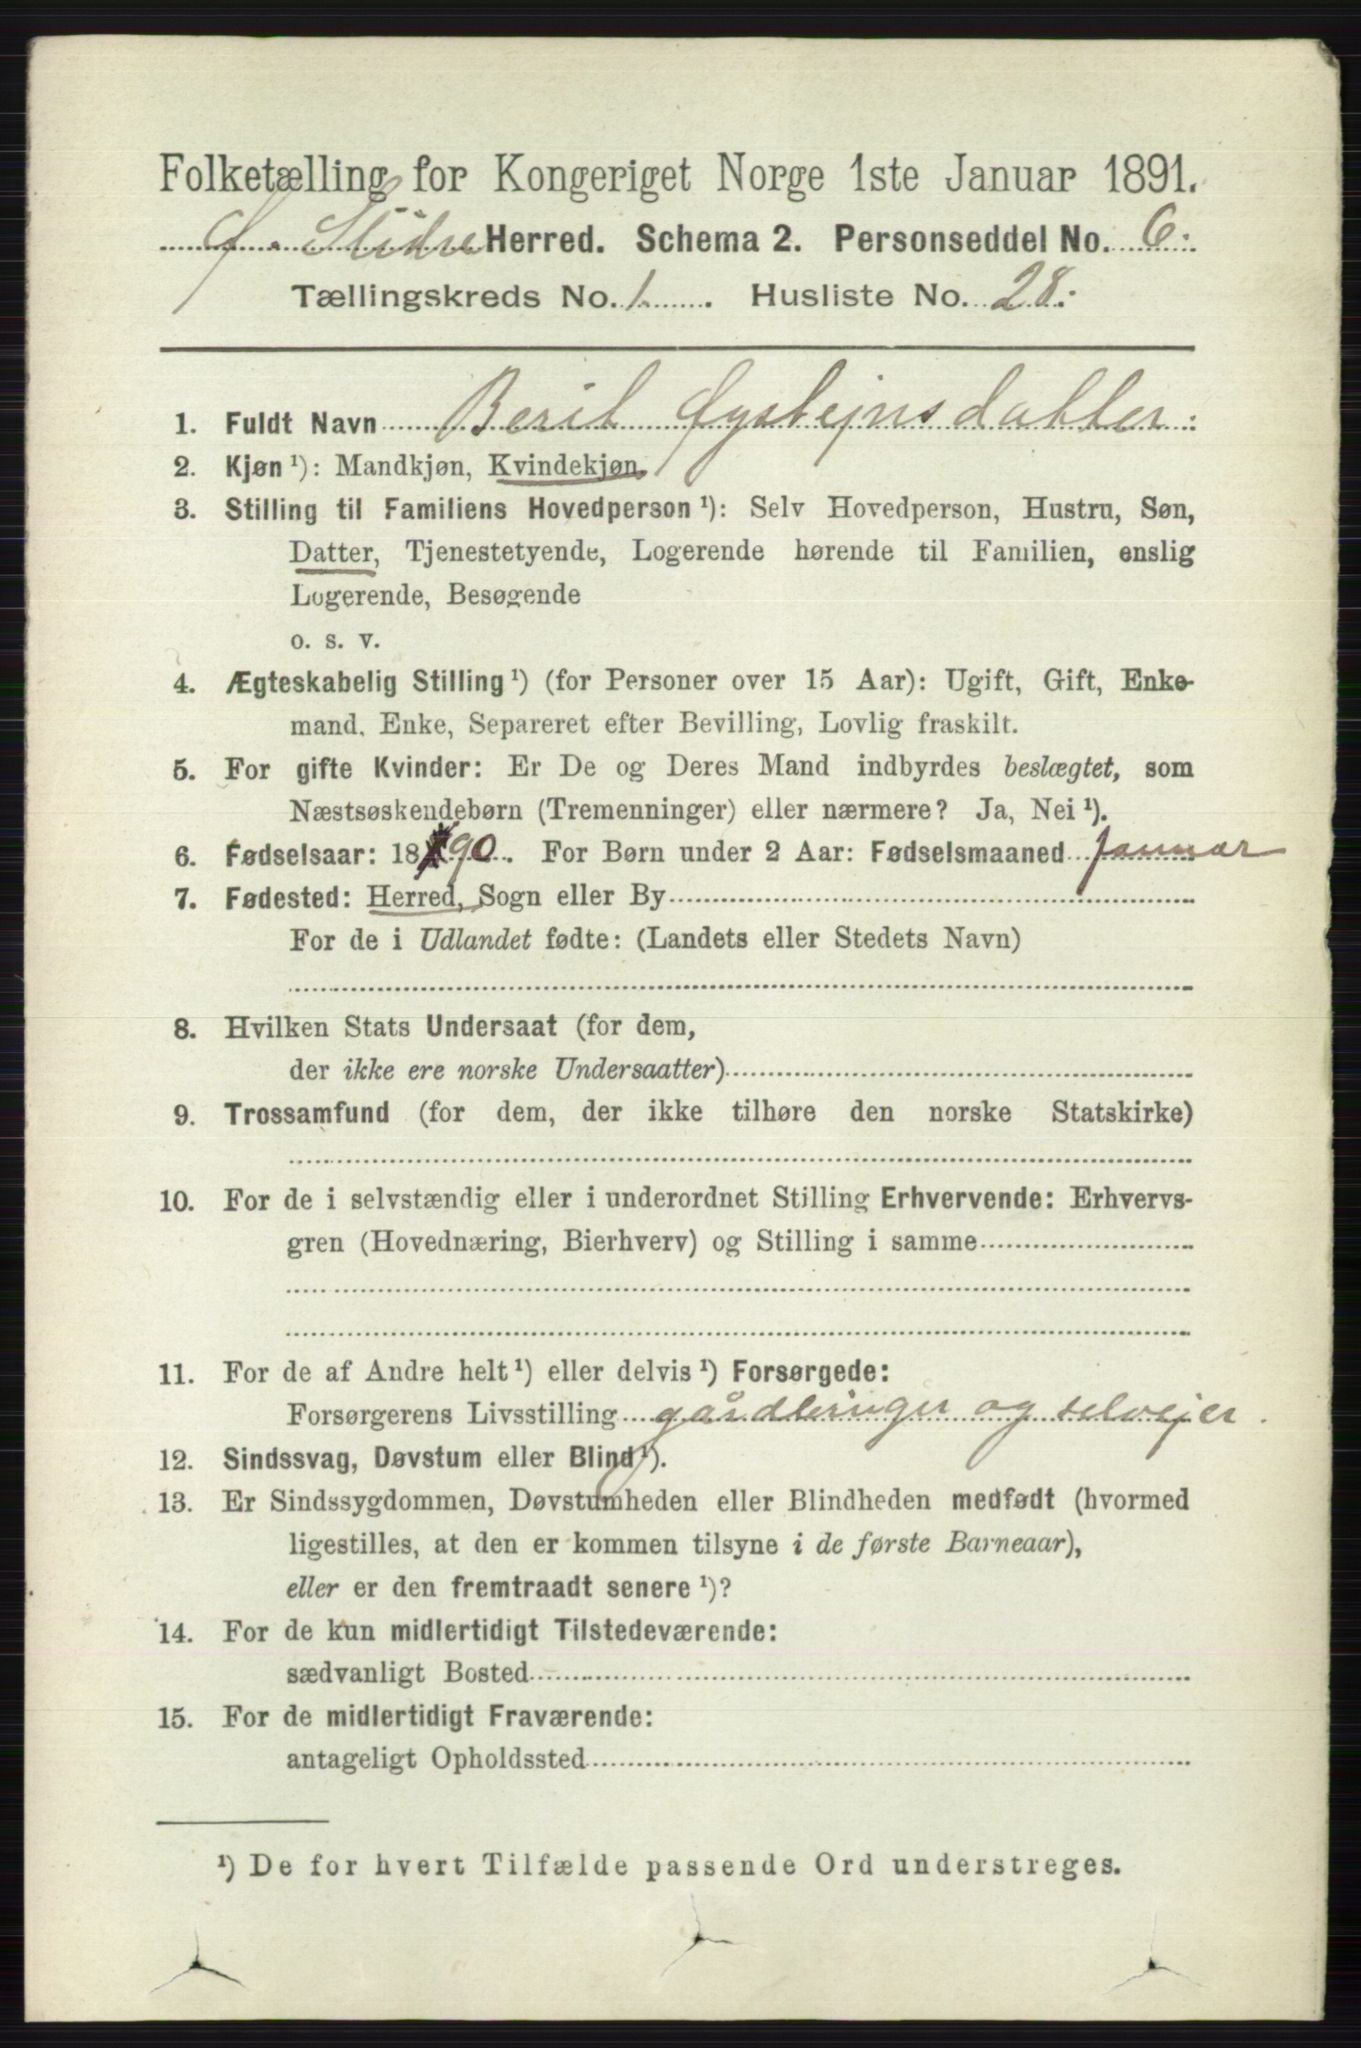 Folketælling for Kongeriget Norge 1ste Januar 1891.
Ø. Slidre Herred. Schema 2. Personseddel No. 6.
Tællingskreds No. 1. Husliste No. 28.
1. Fuldt Navn Berit Øystejnsdatter.
2. Kjøn ¹): Mandkjøn, Kvindekjøn.
3. Stilling til Familiens Hovedperson ¹): Selv Hovedperson, Hustru, Søn,
Datter, Tjenestetyende, Logerende hørende til Familien, enslig
Logerende, Besøgende
o. s. v.
4. Ægteskabelig Stilling ¹) (for Personer over 15 Aar): Ugift, Gift, Enke-
mand, Enke, Separeret efter Bevilling, Lovlig fraskilt.
5. For gifte Kvinder: Er De og Deres Mand indbyrdes beslægtet, som
Næstsøskendebørn (Tremenninger) eller nærmere? Ja, Nei ¹).
6. Fødselsaar: 1890. For Børn under 2 Aar: Fødselsmaaned Januar
7. Fødested: Herred, Sogn eller By
For de i Udlandet fødte: (Landets eller Stedets Navn)
8. Hvilken Stats Undersaat (for dem,
der ikke ere norske Undersaatter)
9. Trossamfund (for dem, der ikke tilhøre den norske Statskirke)
10. For de i selvstændig eller i underordnet Stilling Erhvervende: Erhvervs-
gren (Hovednæring, Bierhverv) og Stilling i samme
11. For de af Andre helt ¹) eller delvis ¹) Forsørgede:
Forsørgerens Livsstilling gårdbruger og selvejer.
12. Sindssvag, Døvstum eller Blind ¹).
13. Er Sindssygdommen, Døvstumheden eller Blindheden medfødt (hvormed
ligestilles, at den er kommen tilsyne i de første Barneaar),
eller er den fremtraadt senere ¹)?
14. For de kun midlertidigt Tilstedeværende:
sædvanligt Bosted
15. For de midlertidigt Fraværende:
antageligt Opholdssted
¹) De for hvert Tilfælde passende Ord understreges.